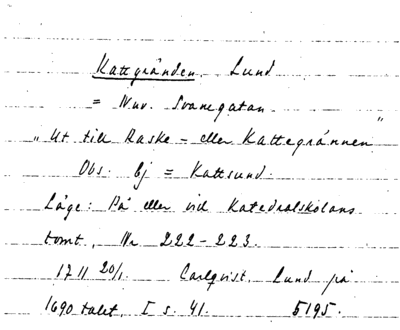 Kattegränden, Lund
= Nuv. Svanegatan
"Ut till Raske- eller Kattegrännen"
Obs. Ej = Kattsund.
Läge: På eller vid Katedralskolans
tomt, Nr 222-223.
1711 20/1. Carlqvist, Lund på
1690 talet, I s. 41. 5195.